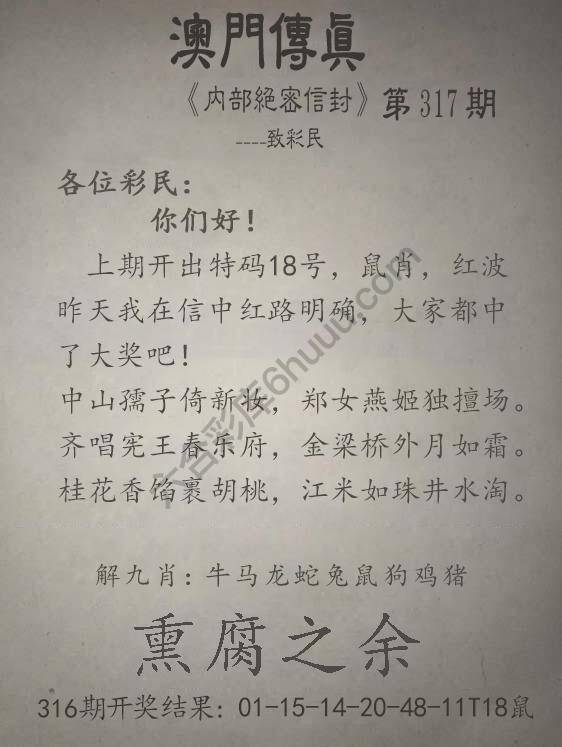 澳門傳眞
《内部絕密信封》第317期
----致彩民
各位彩民：
你们好！
上期开出特码18号，鼠肖，红波
昨天我在信中红路明确，大家都中
了大奖吧！
中山孺子倚新妆，郑女燕姬独擅场。
齐唱宪王春乐府，金梁桥外月如霜。
桂花香馅裹胡桃，江米如珠井水淘。
六合彩库6huuu.com
解九肖：牛马龙蛇兔鼠狗鸡猪
熏腐之余
316期开奖结果：01-15-14-20-48-11T18鼠